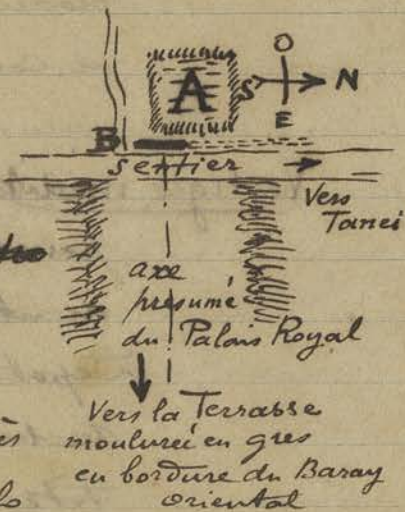 O
A
S N
E
B
sentier
Vers
Tanei
axe
présumé
du Palais Royal
Vers la Terrasse
moulurée en grès
en bordure du Baray
oriental